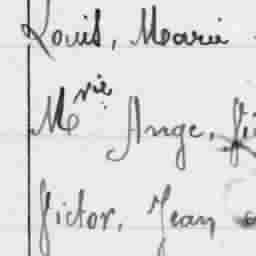 Louis, Mearie
Mvie Ange,
Victor, Jean